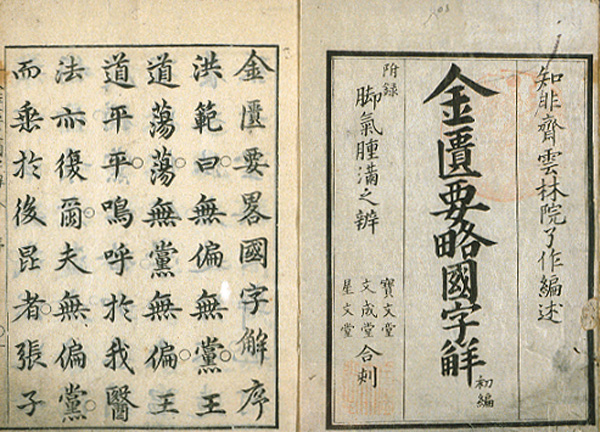 知非齋雲林院了作編述
金匱要略國字解
初編
附録
脚氣腫満之辨
寶文堂
文成堂
星文堂
合刻
金匱要畧國字解序
洪範曰無偏無黨王
道蕩蕩無黨無偏王
道平平嗚呼於我醫
法亦復爾夫無偏黨
而垂於後昆者張子